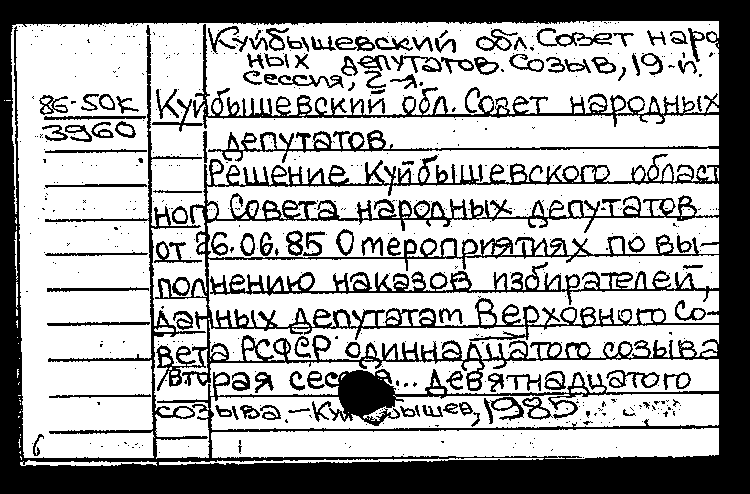 Куйбышевский обл. Совет наро
ных депутатов. Созыв, 19-й.
Сессия, 2-я.
86-50к
3960
Куйбышевский обл. Совет народных
депутатов.
Решение Куйбышевского област
ного Совета народных депутатов
от 26.06.85 О мероприятиях по вы-
полнению наказов избирателей,
данных депутатам Верховного Со-
вета РСФСР одиннадцатого созыва
/вторая сес... девятнадцатого
созыва. - Ку бышев, 1985.
6